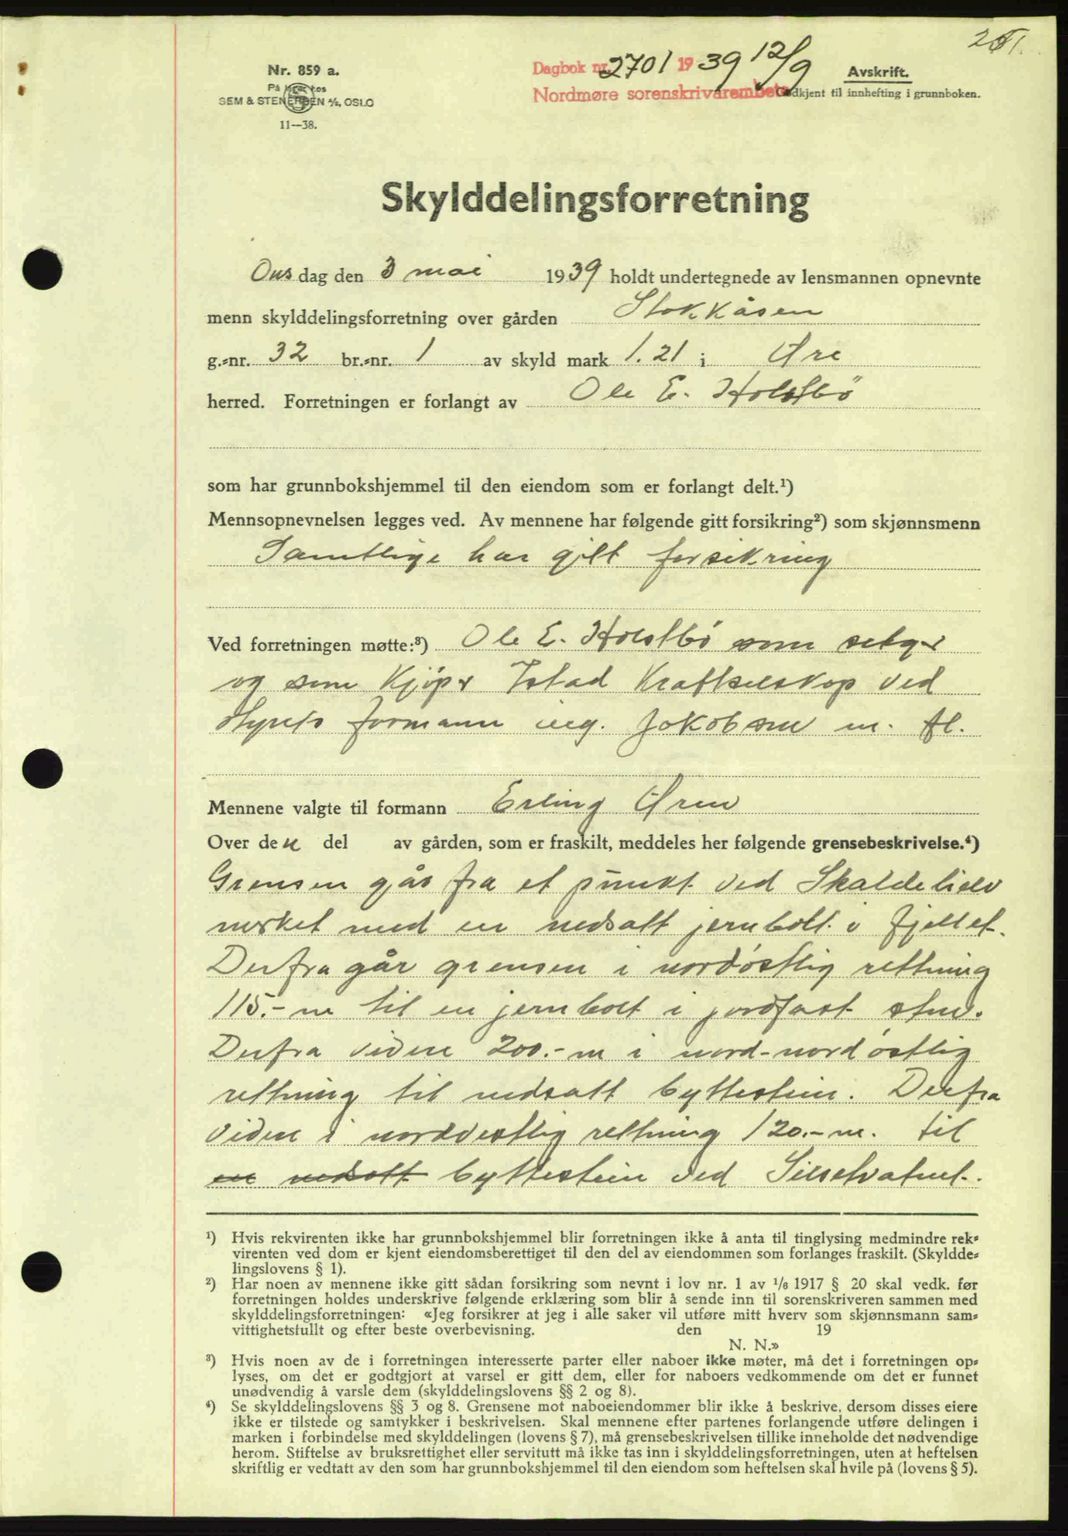 251.
Nr. 859 a.
På lager hos
SEM & STENERSEN A/S, OSLO
11—38.
Dagbok nr. 2701 1939 12/9
Nordmøre sorenskrivarembete
Avskrift.
Godkjent til innhefting i grunnboken.
Skylddelingsforretning
Ons dag den 3 mai 1939 holdt undertegnede av lensmannen opnevnte
menn skylddelingsforretning over gården Stokkåsen
g.-nr. 32 br.-nr. 1 av skyld mark 1.21 i Øre
herred. Forretningen er forlangt av Ole E. Holstbö
som har grunnbokshjemmel til den eiendom som er forlangt delt.¹)
Mennsopnevnelsen legges ved. Av mennene har følgende gitt forsikring²) som skjønnsmenn
Samtlige har gitt forsikring
Ved forretningen møtte:³) Ole E. Holstbö som selger
og som kjöper Istad Kraftselskap ved
styrets formann ing. Jakobsen m. fl.
Mennene valgte til formann Erling Øren
Over den del av gården, som er fraskilt, meddeles her følgende grensebeskrivelse.⁴)
Grensen går fra et punkt ved Skaldelielv
merket med en nedsatt jernbolt i fjellet.
Derfra går grensen i nordöstlig rettning
115.- m til en jernbolt i jordfast sten.
Derfra videre 200.- m i nord-nordöstlig
rettning til nedsatt byttestein. Derfra
videre i nordvestlig rettning 120.- m. til
en nedsatt byttestein ved Silsetvatnet.
¹) Hvis rekvirenten ikke har grunnbokshjemmel blir forretningen ikke å anta til tinglysing medmindre rek-
virenten ved dom er kjent eiendomsberettiget til den del av eiendommen som forlanges fraskilt. (Skyldde-
lingslovens § 1).
²) Har noen av mennene ikke gitt sådan forsikring som nevnt i lov nr. 1 av 1/6 1917 § 20 skal vedk. før
forretningen holdes underskrive følgende erklæring som blir å sende inn til sorenskriveren sammen med
skylddelingsforretningen: «Jeg forsikrer at jeg i alle saker vil utføre mitt hverv som skjønnsmann sam-
vittighetsfullt og efter beste overbevisning. den 19
N. N.»
³) Hvis noen av de i forretningen interesserte parter eller naboer ikke møter, må det i forretningen op-
lyses, om det er godtgjort at varsel er gitt dem, eller for naboers vedkommende om det er funnet
unødvendig å varsle dem (skylddelingslovens §§ 2 og 8).
⁴) Se skylddelingslovens §§ 3 og 8. Grensene mot naboeiendommer blir ikke å beskrive, dersom disses eiere
ikke er tilstede og samtykker i beskrivelsen. Skal mennene efter partenes forlangende utføre delingen i
marken i forbindelse med skylddelingen (lovens § 7), må grensebeskrivelsen tillike inneholde det nødvendige
herom. Stiftelse av bruksrettighet eller servitutt må ikke tas inn i skylddelingsforretningen, uten at heftelsen
skriftlig er vedtatt av den som har grunnbokshjemmel til den eiendom som heftelsen skal hvile på (lovens § 5).